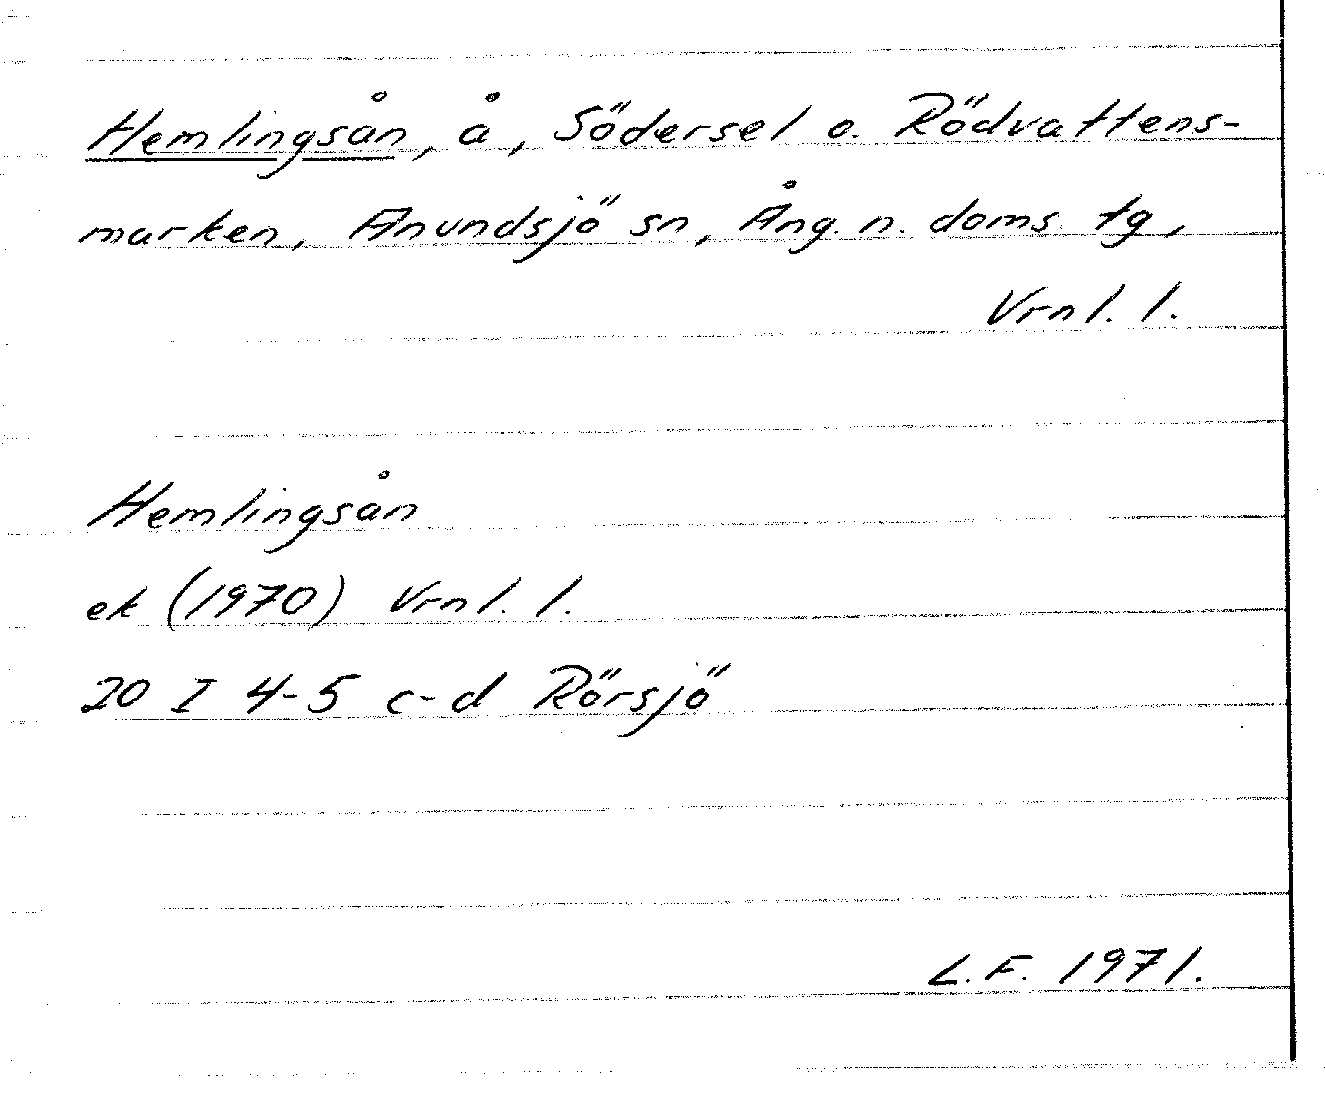 Hemlingsån, å, Södersel o. Rödvattens-
marken, Anundsjö sn, Ång. n. doms. tg,
Vrnl. l.
Hemlingsån
ek (1970) Vrnl. l.
20 I 4-5 c-d Rörsjö
L.F. 1971.